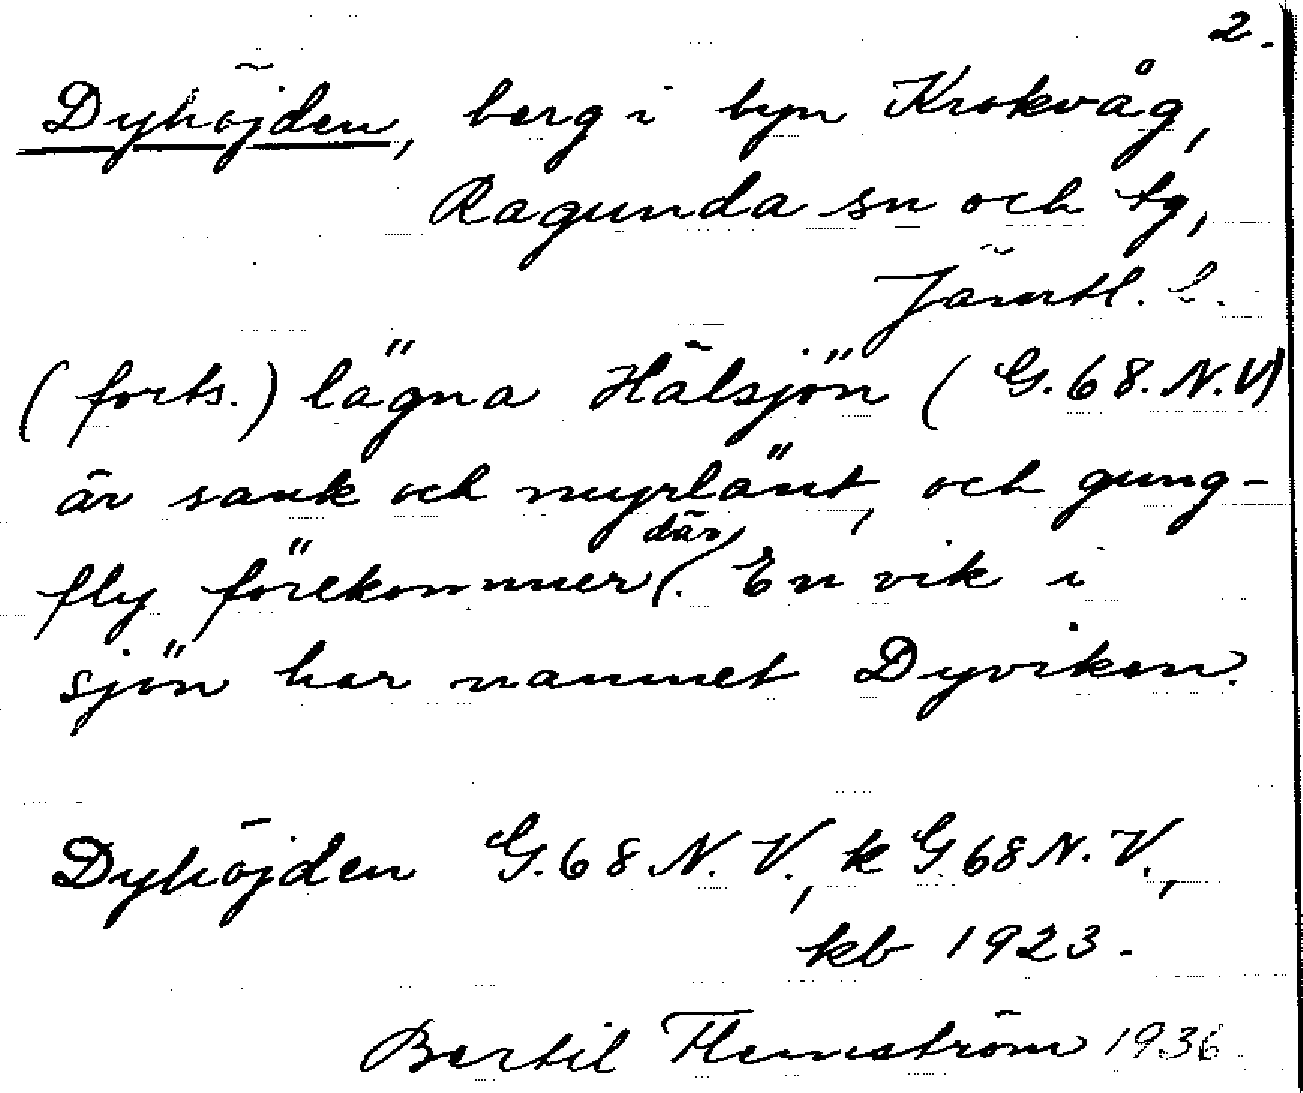 2.
Dyhöjden, berg i byn Krokvåg,
Ragunda sn och tg,
Jämtl. l.
(forts.) lägna Hälsjön (G.68.N.V)
är sank och myrlänt, och gung-
fly förekommer där. En vik i
sjön har namnet Dyviken.
Dyhöjden G.68 N.V., k G68 N.V.,
kb 1923.
Bertil Flemström 1936.